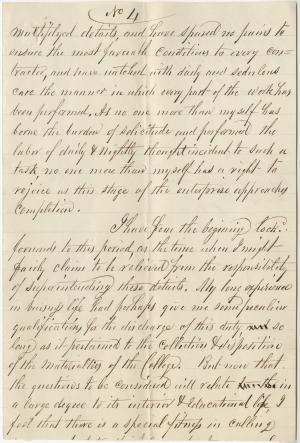 No 4
multiplyed details, and have spared no pains to
ensure the most favorable conditions to every con-
tractor, and have watched with daily and sedulous
care the manner in which every part of the work has
been performed. As no one more than myself has
borne the burden of solicitude and performed the
labor of daily & nightly thought incident to such a
task, no one more than myself has a right to
rejoice as this stage of the enterprise approaches
completion.
I have from the begining look.
forwards to this period, as the time when I might
fairly claims to be relieved from the responsibility
of superintending these details. My long experience
in business life had perhaps give me some peculiar
qualifications for the discharge of this duty so
long as it pertained to the collection & disposition
of the materialties of the College. But now that
the questions to be considered will relate
in
a large degree to its interior & educational life, I
feel that there is a special fitness in calling